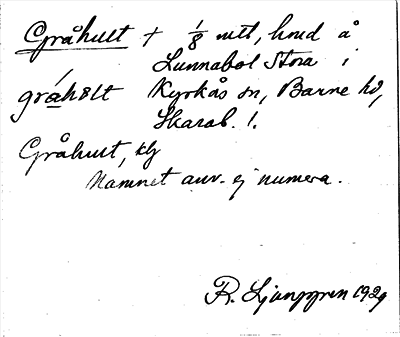 Gråhult + 1/8 mtl, hmd å
Lunnabol Stora i
gråhølt Kyrkås sn, Barne hd,
Skarab. l.
Gråhult, tg
Namnet anv. ej numera.
R. Ljunggren 1929